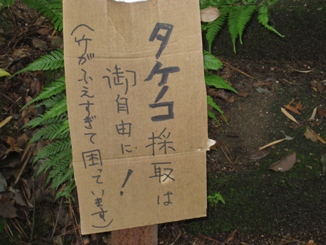 タケノコ採取は
御自由に！
(竹がふえすぎて困っています)